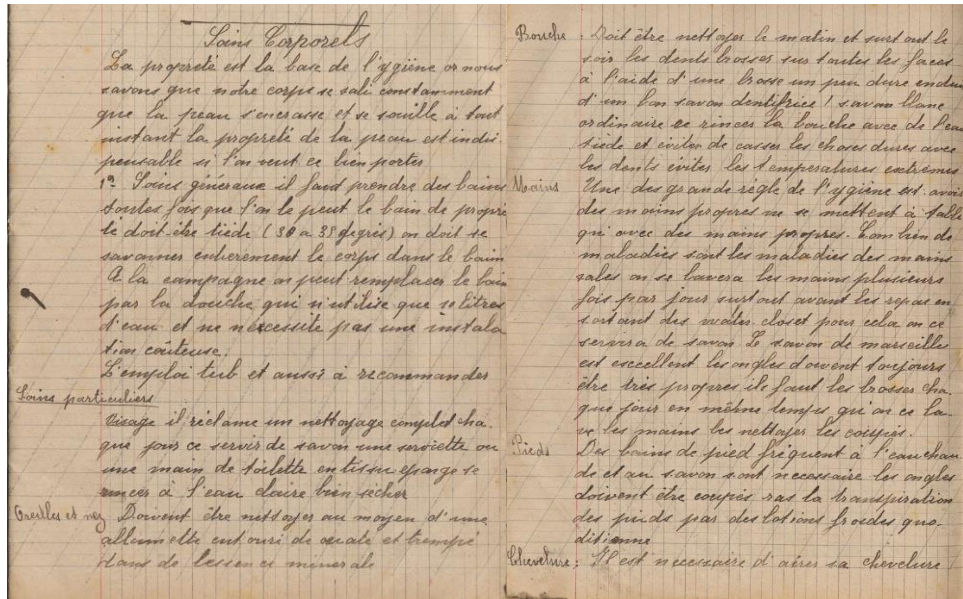 Soins Corporels
La propreté est la base de l'ygiène or nous
savons que notre corps se sali constamment
que la peau s'encrasse et se souille à tout
instant la propreté de la peau est indis
pensable si l'on veut ce bien porter
1º Soins généraux il faud prendre des bains
toutes fois que l'on le peut le bain de propre
té doit être tiède (30 a 35 degrés) on doit se
savonner entierement le corps dans le bain
A la campagne on peut remplacer le bain
par la douche qui n'utilise que 10 litres
d'eau et ne nécessite pas une instala
tion coûteuse.
L'emploi tub et aussi à recommander
Soins particuliers
Visage il réclame un nettoyage complet cha
que jour ce servir de savon une serviette ou
une main de toilette en tissu eponge se
rincer à l'eau claire bien sécher
Oreilles et nez Doivent être nettoyer au moyen d'une
allumette entouri de ouate et trempé
dans de l'essence minerale
Bouche : Doit être nettoyer le matin et surtout le
soir les dents brosser sur toutes les faces
à l'aide d'une brosse un peu dure endui
d'un bon savon dentifrice ! savon blanc
ordinaire ce rincer la bouche avec de l'eau
tiède et éviter de casser les choses dures avec
les dents éviter les temperatures extrèmes
Mains Une des grande régle de l'ygiène est avoir
des mains propres ne se mettent à table
qu'avec des mains propres. Combien de
maladies sont les maladies des mains
sales on se lavera les mains plusieurs
fois par jour surtout avant les repas en
sortant des water-closet pour cela on ce
servira de savon Le savon de marseilles
est escellent les ongles doivent toujours
être très propres ils faut les brosser cha
que jour en même temps qu'on ce la-
ve les mains les nettoyer les coupés.
Pieds Des bains de pied fréquent à l'eau chau
de et au savon sont necessaire les ongles
doivent être coupés ras la transpiration
des pieds par des lotions froides quo-
ditienne
Chevelure : Il est necessaire d'aérer sa chevelure